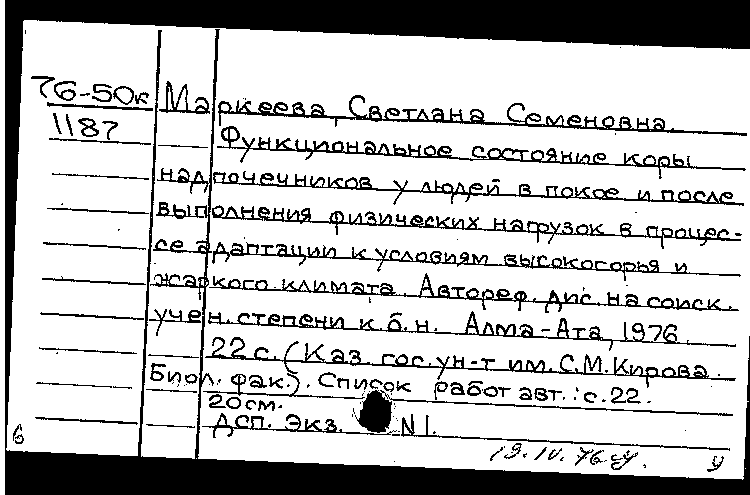 76-50к Маркеева, Светлана Семеновна.
1187 Функциональное состояние коры
надпочечников у людей в покое и после
выполнения физических нагрузок в процес-
се адаптации к условиям высокогорья и
жаркого климата. Автореф. дис. на соиск.
учен. степени к.б.н. Алма-Ата, 1976.
22 с. (Каз. гос. ун-т им. С.М. Кирова.
Биол. фак.). Список работ авт.: с. 22.
20 см.
ДСП. Экз. N1.
19.IV.76
б у